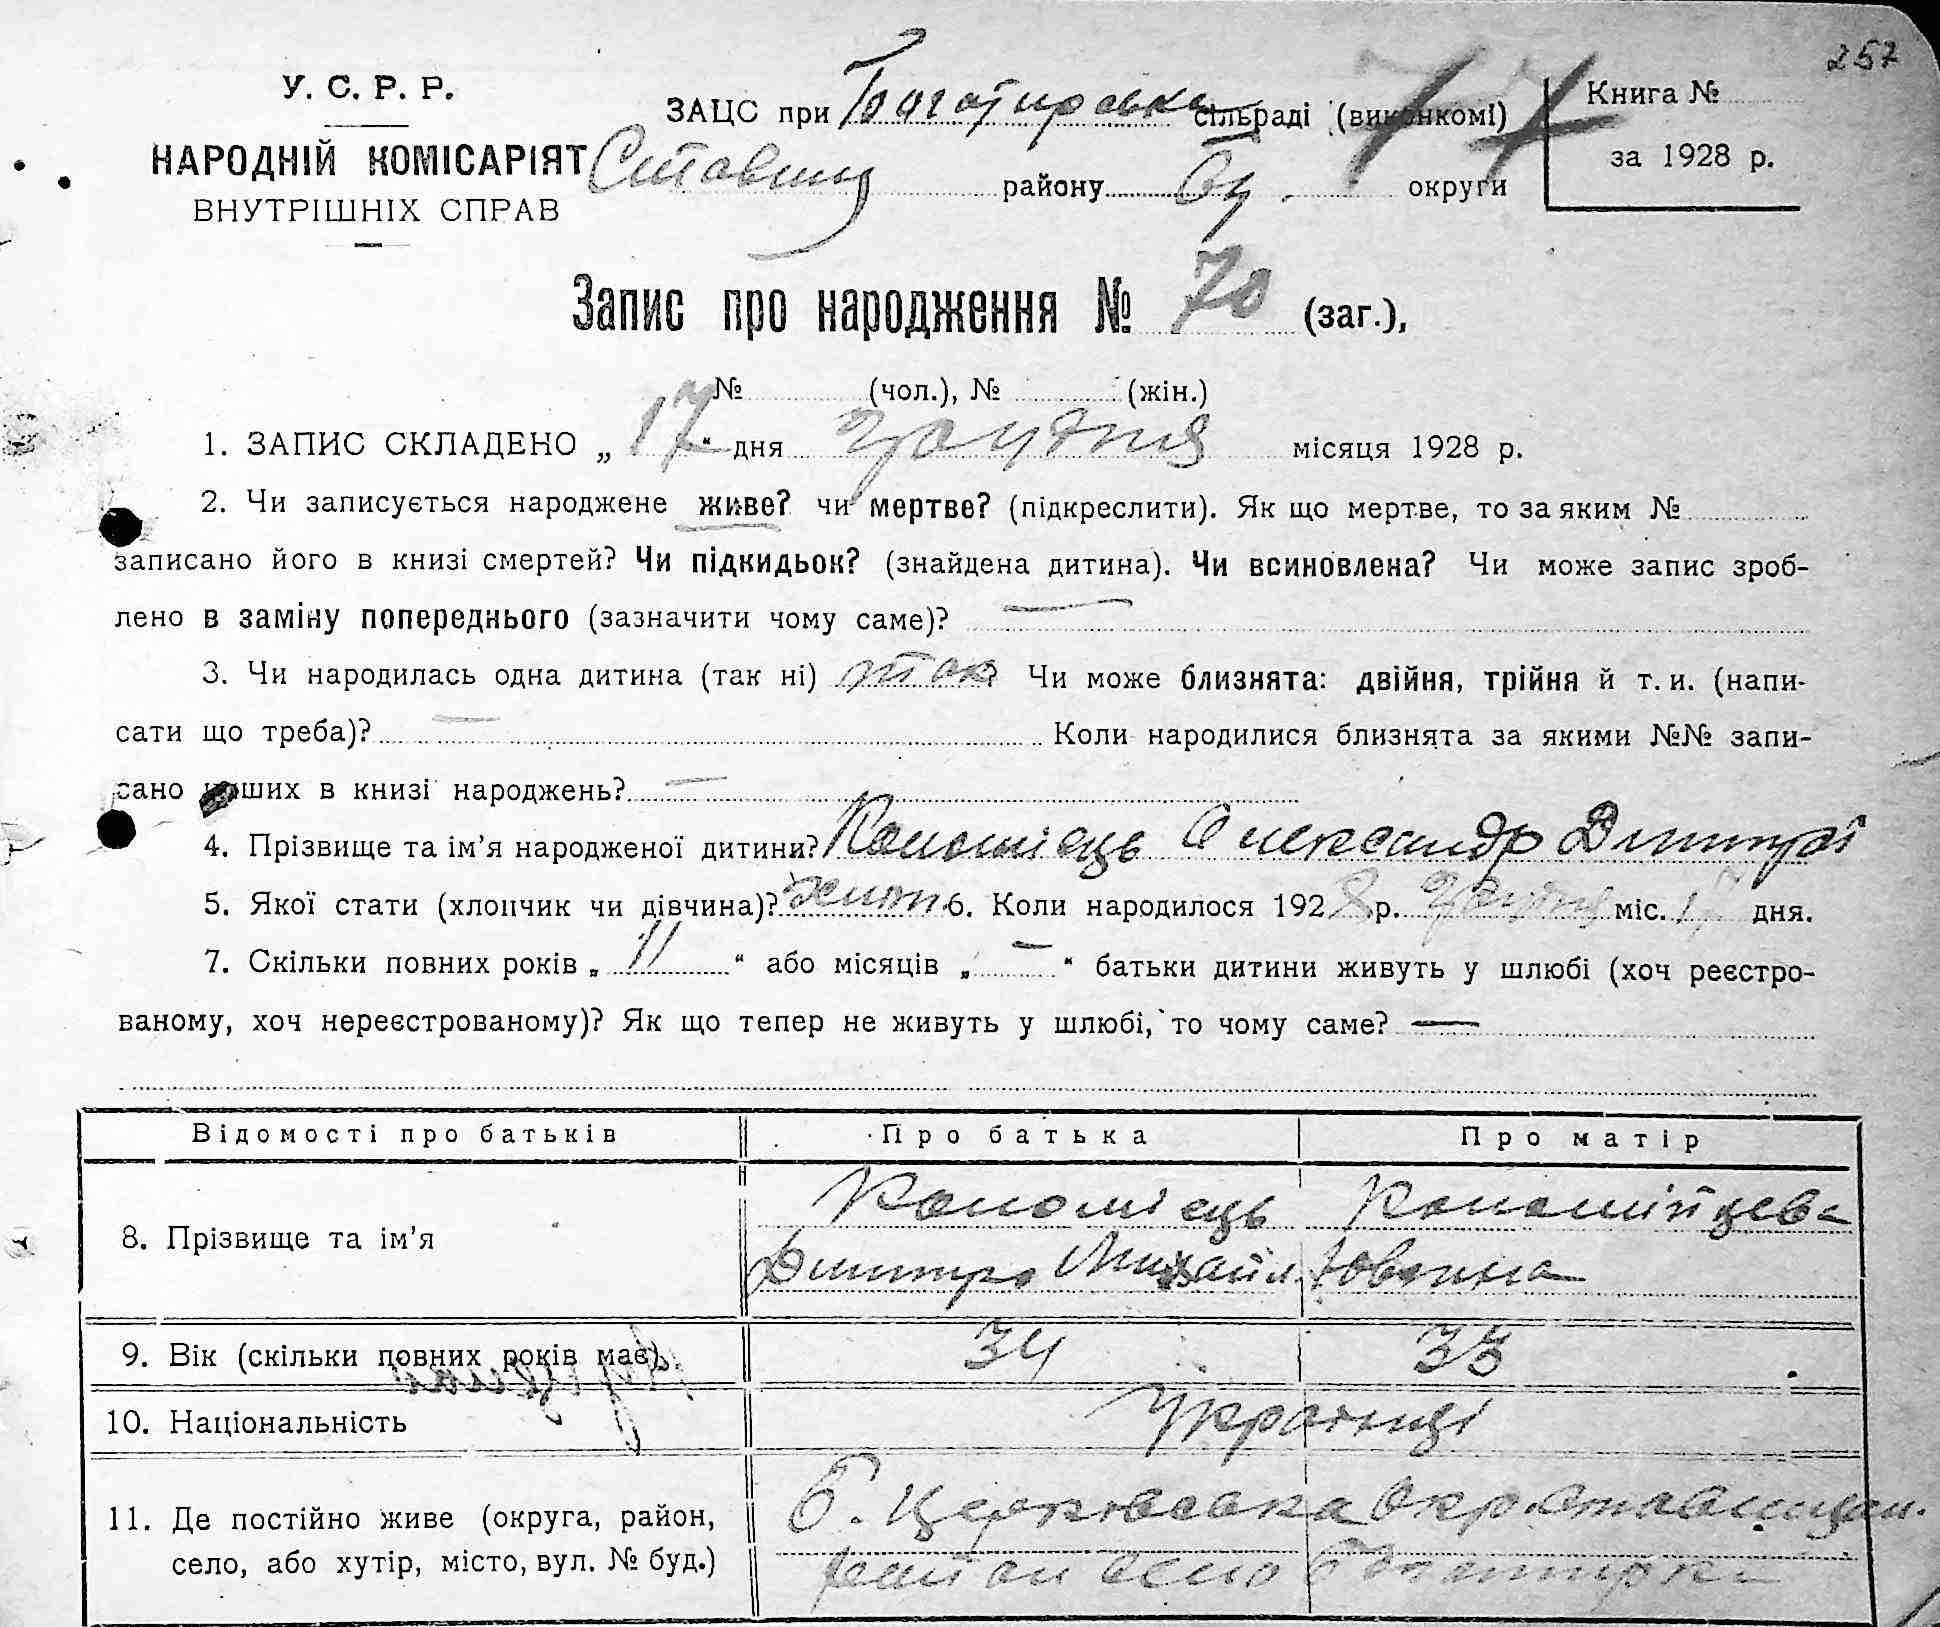 257
У. С. Р. Р.
НАРОДНІЙ КОМІСАРІЯТ
ВНУТРІШНІХ СПРАВ
ЗАЦС при Богатирська сільраді (виконкомі)
Ставищ району Бц. округи
Книга №
за 1928 р.
Запис про народження № 70 (заг.),
№ (чол.), № (жін.)
1. ЗАПИС СКЛАДЕНО „ 17 “ дня грудня місяця 1928 р.
2. Чи записується народжене живе? чи мертве? (підкреслити). Як що мертве, то за яким №
записано його в книзі смертей? Чи підкидьок? (знайдена дитина). Чи всиновлена? Чи може запис зроб-
лено в заміну попереднього (зазначити чому саме)? —
3. Чи народилась одна дитина (так ні) так Чи може близнята: двійня, трійня й т. и. (напи-
сати що треба)? — Коли народилися близнята за якими №№ запи-
сано инших в книзі народжень? —
4. Прізвище та ім’я народженої дитини? Коломієць Олександр Дмитрі
5. Якої стати (хлопчик чи дівчина)? 6. Коли народилося 1928 р. грудня міс. 17 дня.
7. Скільки повних років „ 11 “ або місяців „ — “ батьки дитини живуть у шлюбі (хоч реєстро-
ваному, хоч нереєстрованому)? Як що тепер не живуть у шлюбі, то чому саме? —
Відомості про батьків Про батька Про матір
8. Прізвище та ім’я Коломієць Коломійцева
Дмитро Михайл.
9. Вік (скільки повних років має) 34 33
10. Національність Українці
11. Де постійно живе (округа, район,
село, або хутір, місто, вул. № буд.)
Б. Церківська Окр. Ставищан.
район село Богатирка